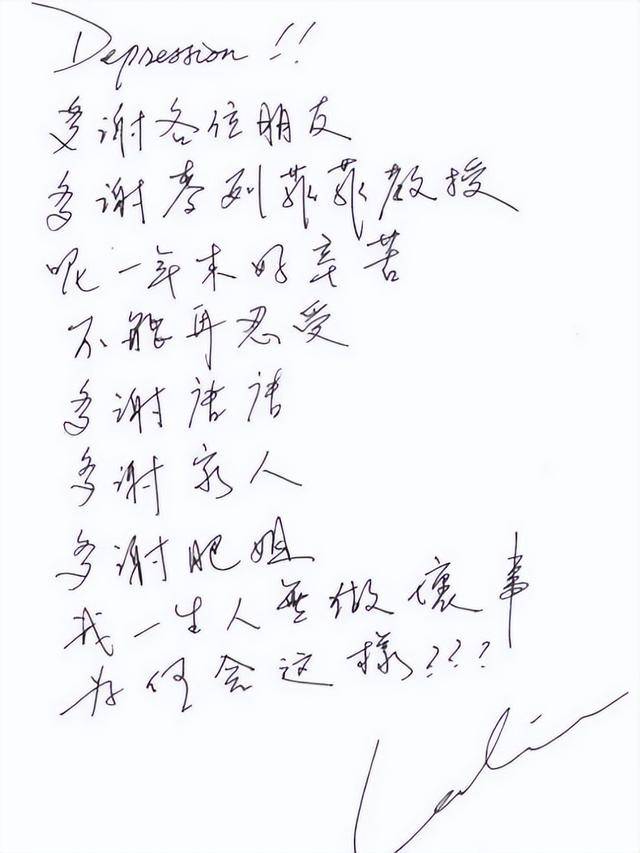 Depression!!
多谢各位朋友
多谢麦列菲菲教授
呢一年来好辛苦
不能再忍受
多谢唐唐
多谢家人
多谢肥姐
我一生人無做壞事
为何会这樣???
Leslie